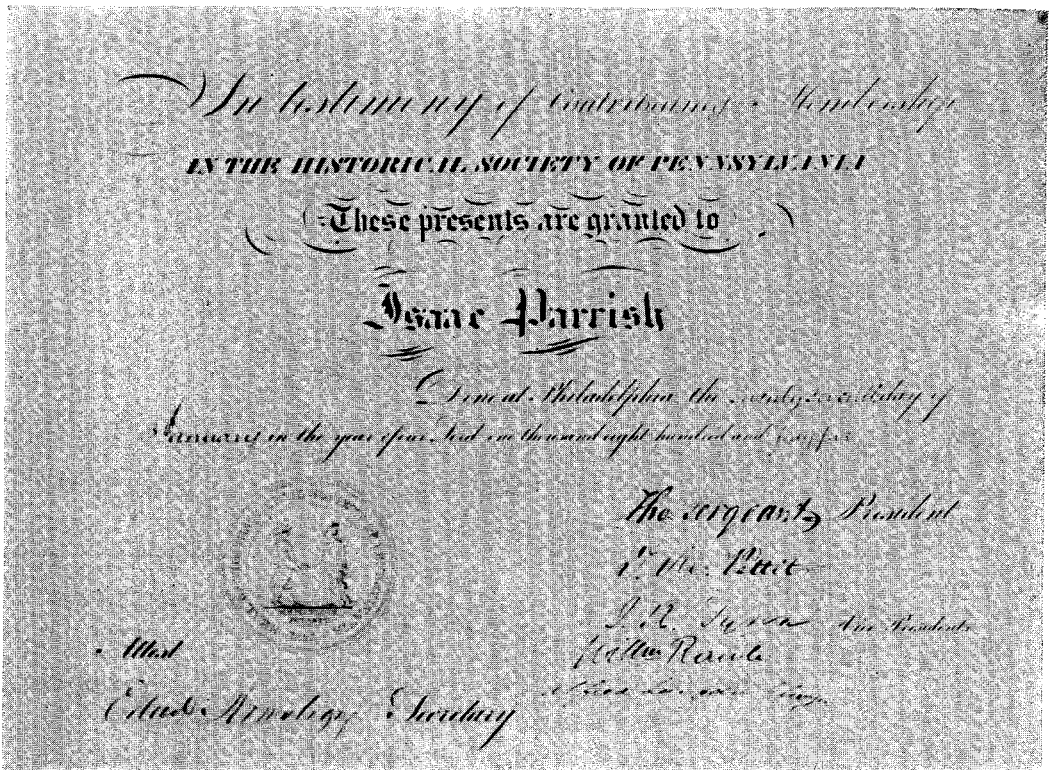 In testimony of Contributing Membership
IN THE HISTORICAL SOCIETY OF PENNSYLVANIA
These presents are granted to
Isaac Parrish
Done at Philadelphia the day of
January in the year of our Lord one thousand eight hundred and
Tho Sergeant, President
T. M. Pettit
J. R. Tyson Vice Presidents
William Rawle
Attest
Edwd Armstrong Secretary